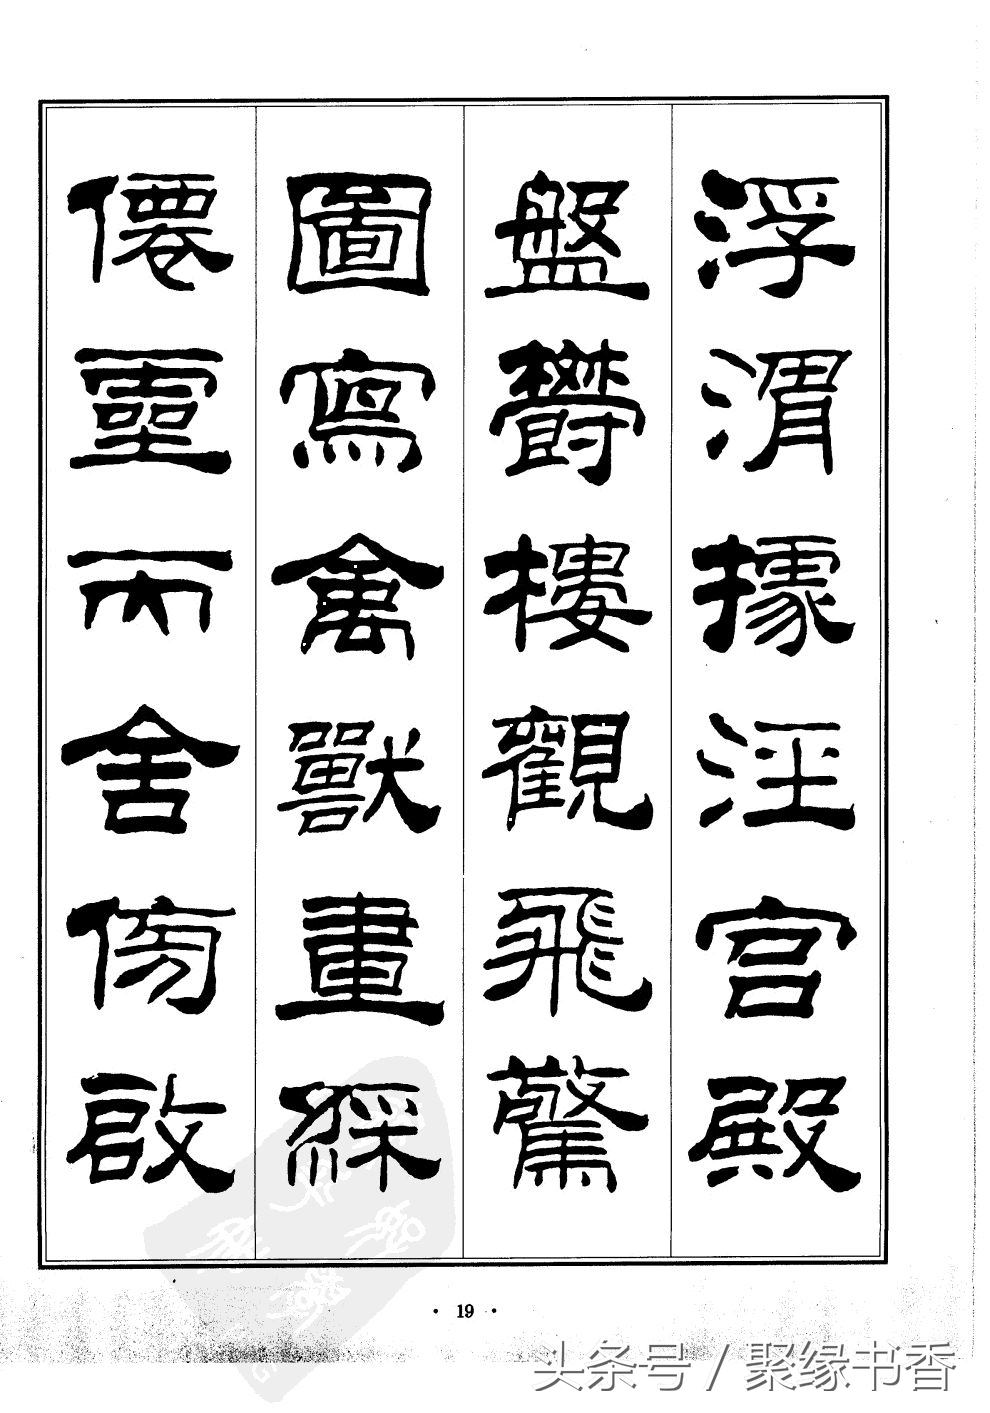 浮渭據涇宮殿
盤鬱樓觀飛驚
圖寫禽獸畫綵
僊靈丙舍傍啟
· 19 ·
头条号 / 聚缘书香